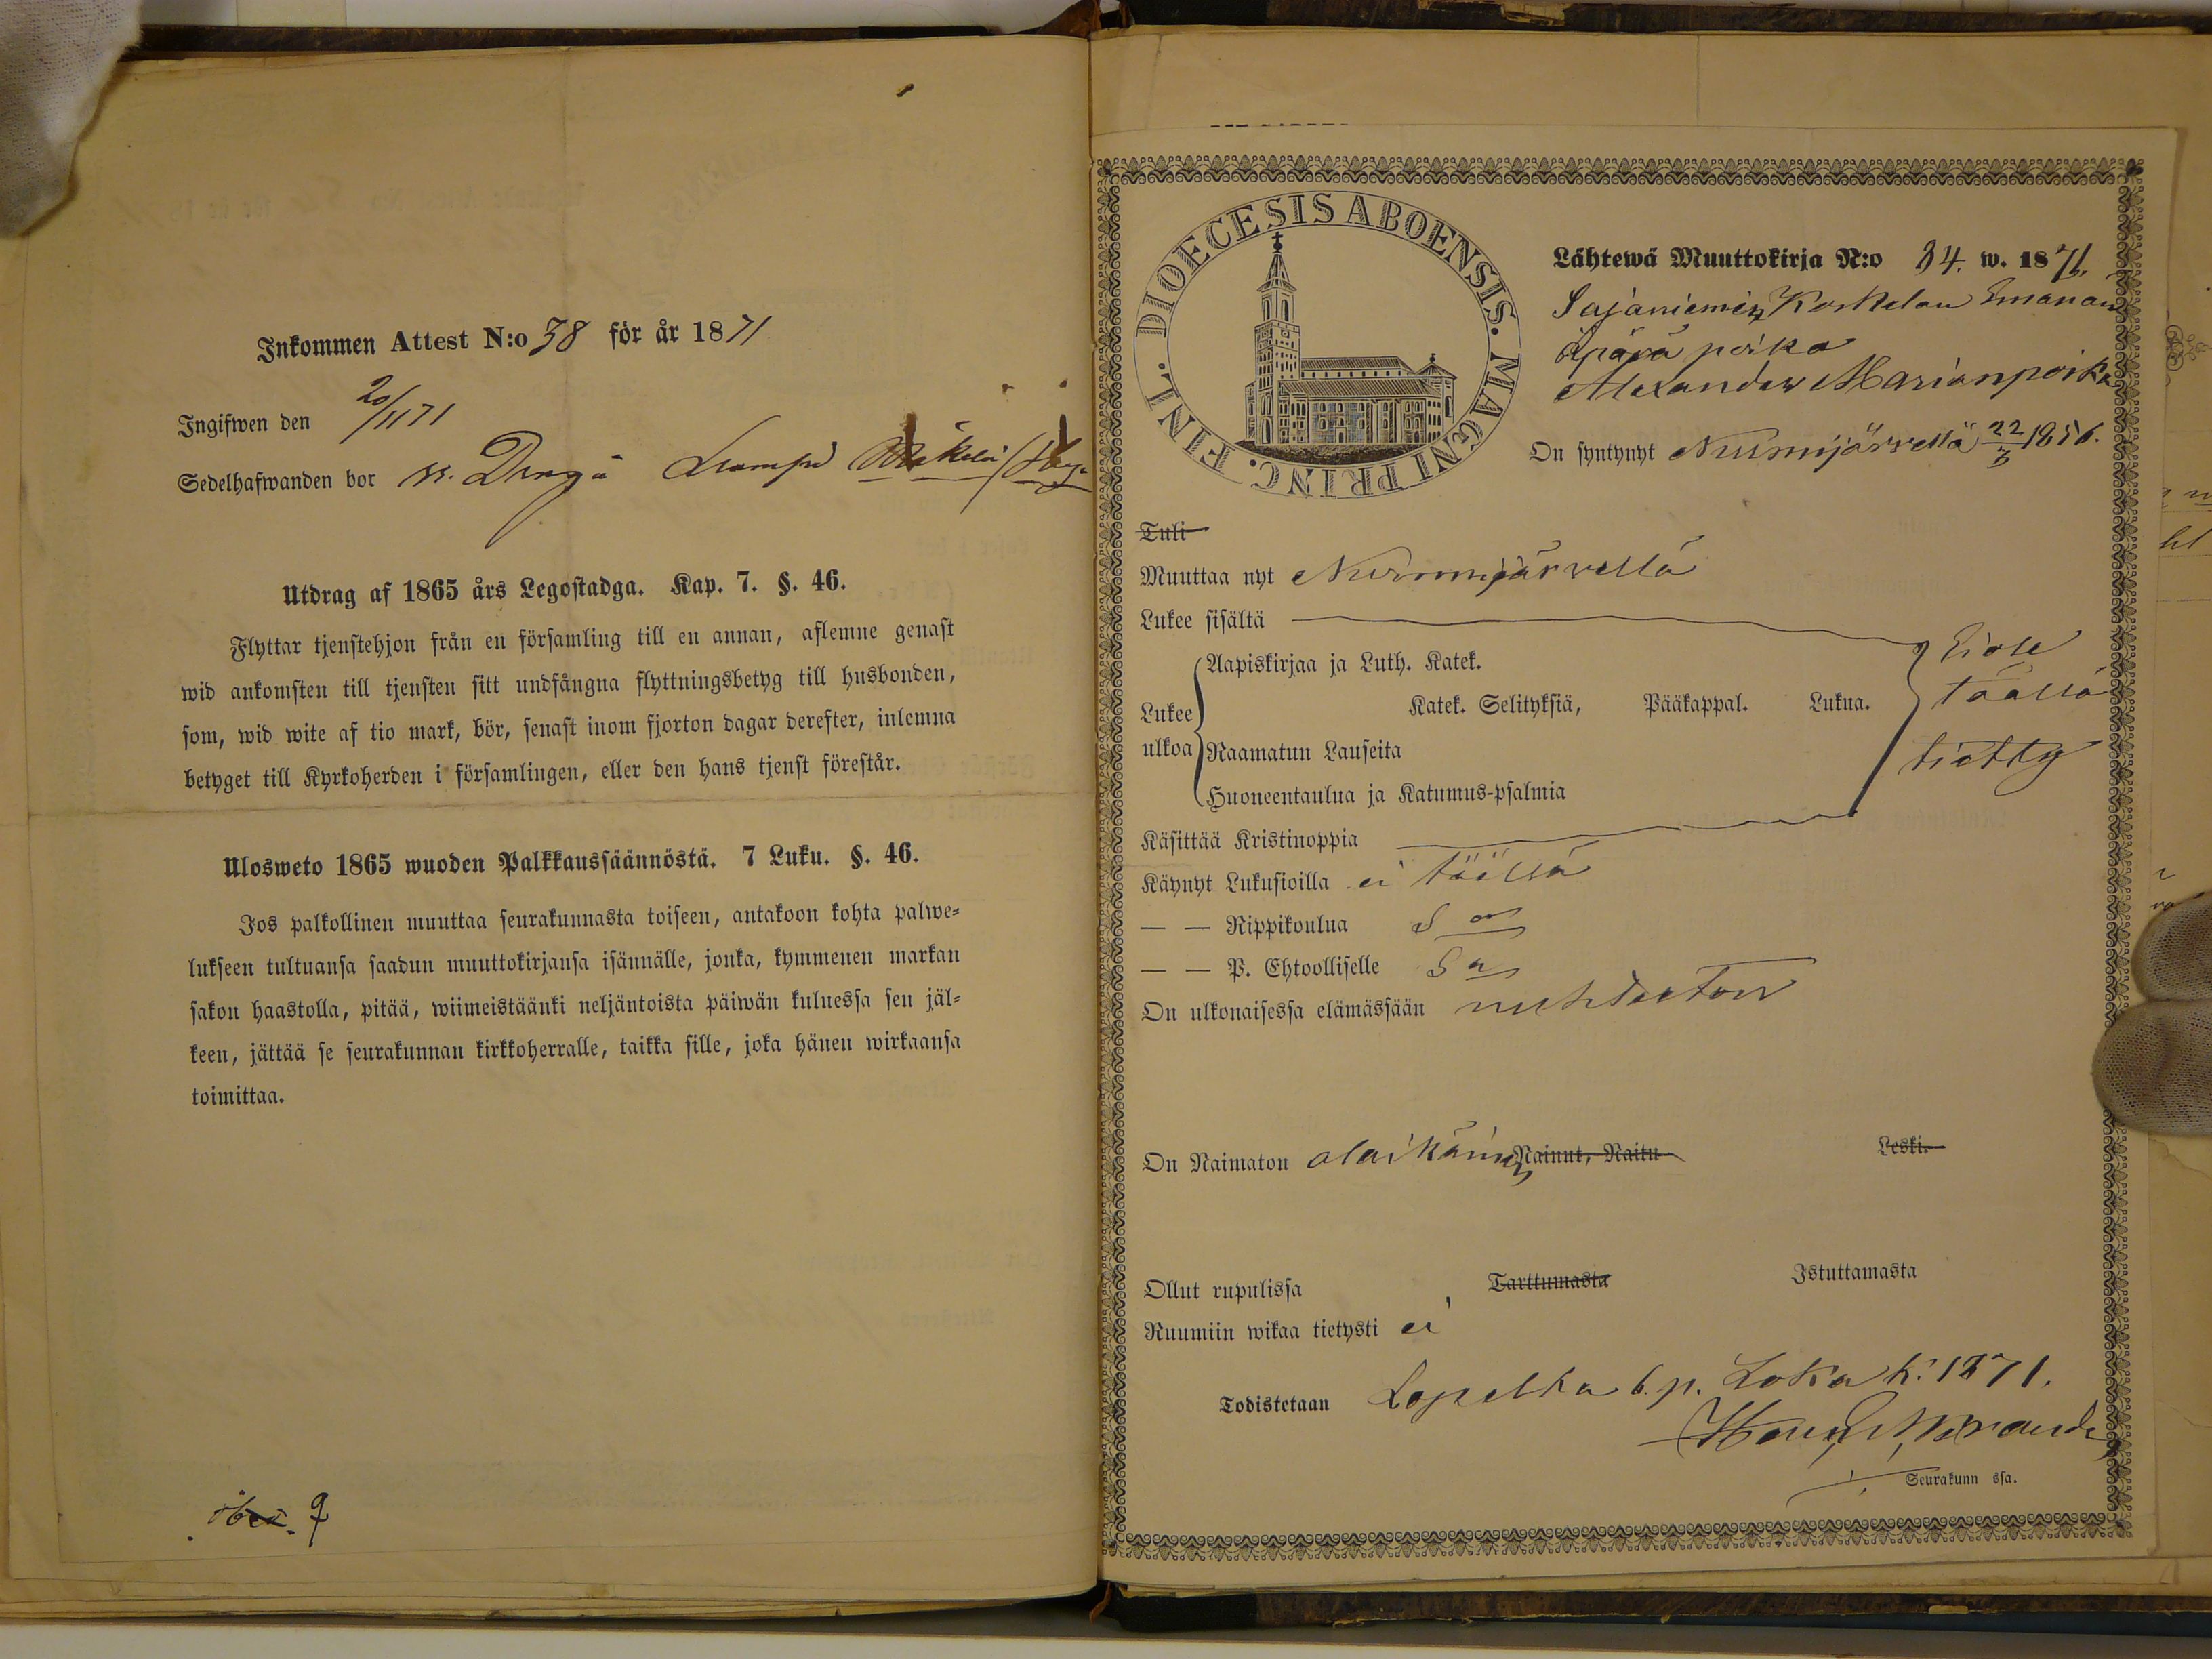 Inkommen Attest N:o 38 för år 1871
Ingifwen den 20/11 71
Sedelhafwanden bor
Utdrag af 1865 års Legostadga. Kap. 7. §. 46.
Flyttar tjenstehjon från en församling till en annan, aflemne genast
wid ankomsten till tjensten sitt undfångna flyttningsbetyg till husbonden,
som, wid wite af tio mark, bör, senast inom fjorton dagar derefter, inlemna
betyget till Kyrkoherden i församlingen, eller den hans tjenst förestår.
Ulosweto 1865 wuoden Palkkaussäännöstä. 7 Luku. §. 46.
Jos palkollinen muuttaa seurakunnasta toiseen, antakoon kohta palwe-
lukseen tultuansa saadun muuttokirjansa isännälle, jonka, kymmenen markan
sakon haastolla, pitää, wiimeistäänki neljäntoista päiwän kuluessa sen jäl-
keen, jättää se seurakunnan kirkkoherralle, taikka sille, joka hänen wirkaansa
toimittaa.
DIOECESIS ABOENSIS. MAGNI PRINC. FINL.
Lähtewä Muuttokirja N:o 34. w. 1871.
Sajaniemen Koskelan
Äpärä poika
Alexander Marianpoika
On syntynyt Nurmijärvellä 22/3 1856.
Tuli
Muuttaa nyt Nurmijärvellä
Lukee sisältä
Aapiskirjaa ja Luth. Katek.
Lukee ulkoa
Katek. Selityksiä, Pääkappal. Lukua.
Raamatun Lauseita
Huoneentaulua ja Katumus-psalmia
Ei ole
täällä
tietty
Käsittää Kristinoppia
Käynyt Lukusioilla ei täällä
— — Rippikoulua
— — P. Ehtoolliselle
On ulkonaisessa elämässään nuhteeton
On Naimaton alaikäinen Nainut, Raitu Leski.
Ollut rupulissa Tarttumasta Istuttamasta
Ruumiin wikaa tietysti ei
Todistetaan Lopelta 6. p. Loka k. 1871.
Seurakunn ssa.